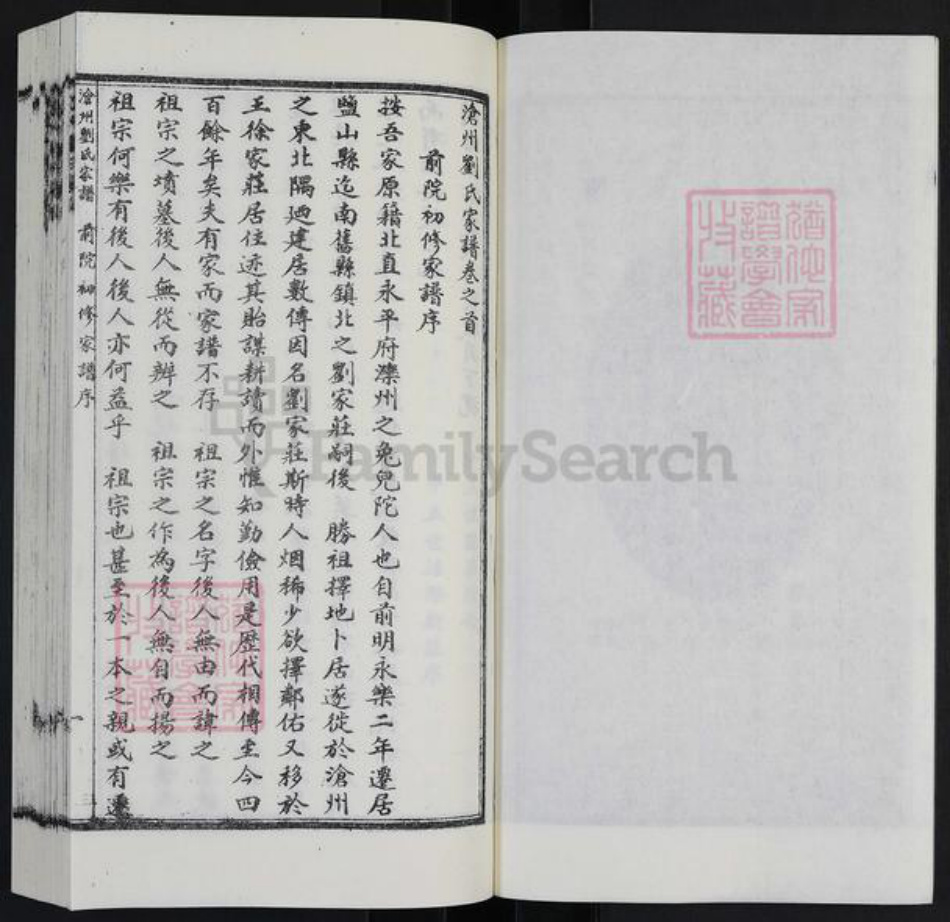 滄州劉氏家譜卷之首
前院初修家譜序
按吾家原籍北直永平府灤州之兔兒陀人也自前明永樂二年遷居
鹽山縣迄南舊縣鎮北之劉家莊嗣後 勝祖擇地卜居遂徙於滄州
之東北隅廼建居數傳因名劉家莊斯時人烟稀少欲擇鄰佑又移於
王徐家莊居住迹其貽謀耕讀而外惟知勤儉用是歷代相傳至今四
百餘年矣夫有家而家譜不存 祖宗之名字後人無由而諱之
祖宗之墳墓後人無從而辨之 祖宗之作為後人無自而揚之
祖宗何樂有後人後人亦何益乎 祖宗也甚至於一本之親或有
滄州劉氏家譜 前院初修家譜序
FamilySearch
譜學會
藏